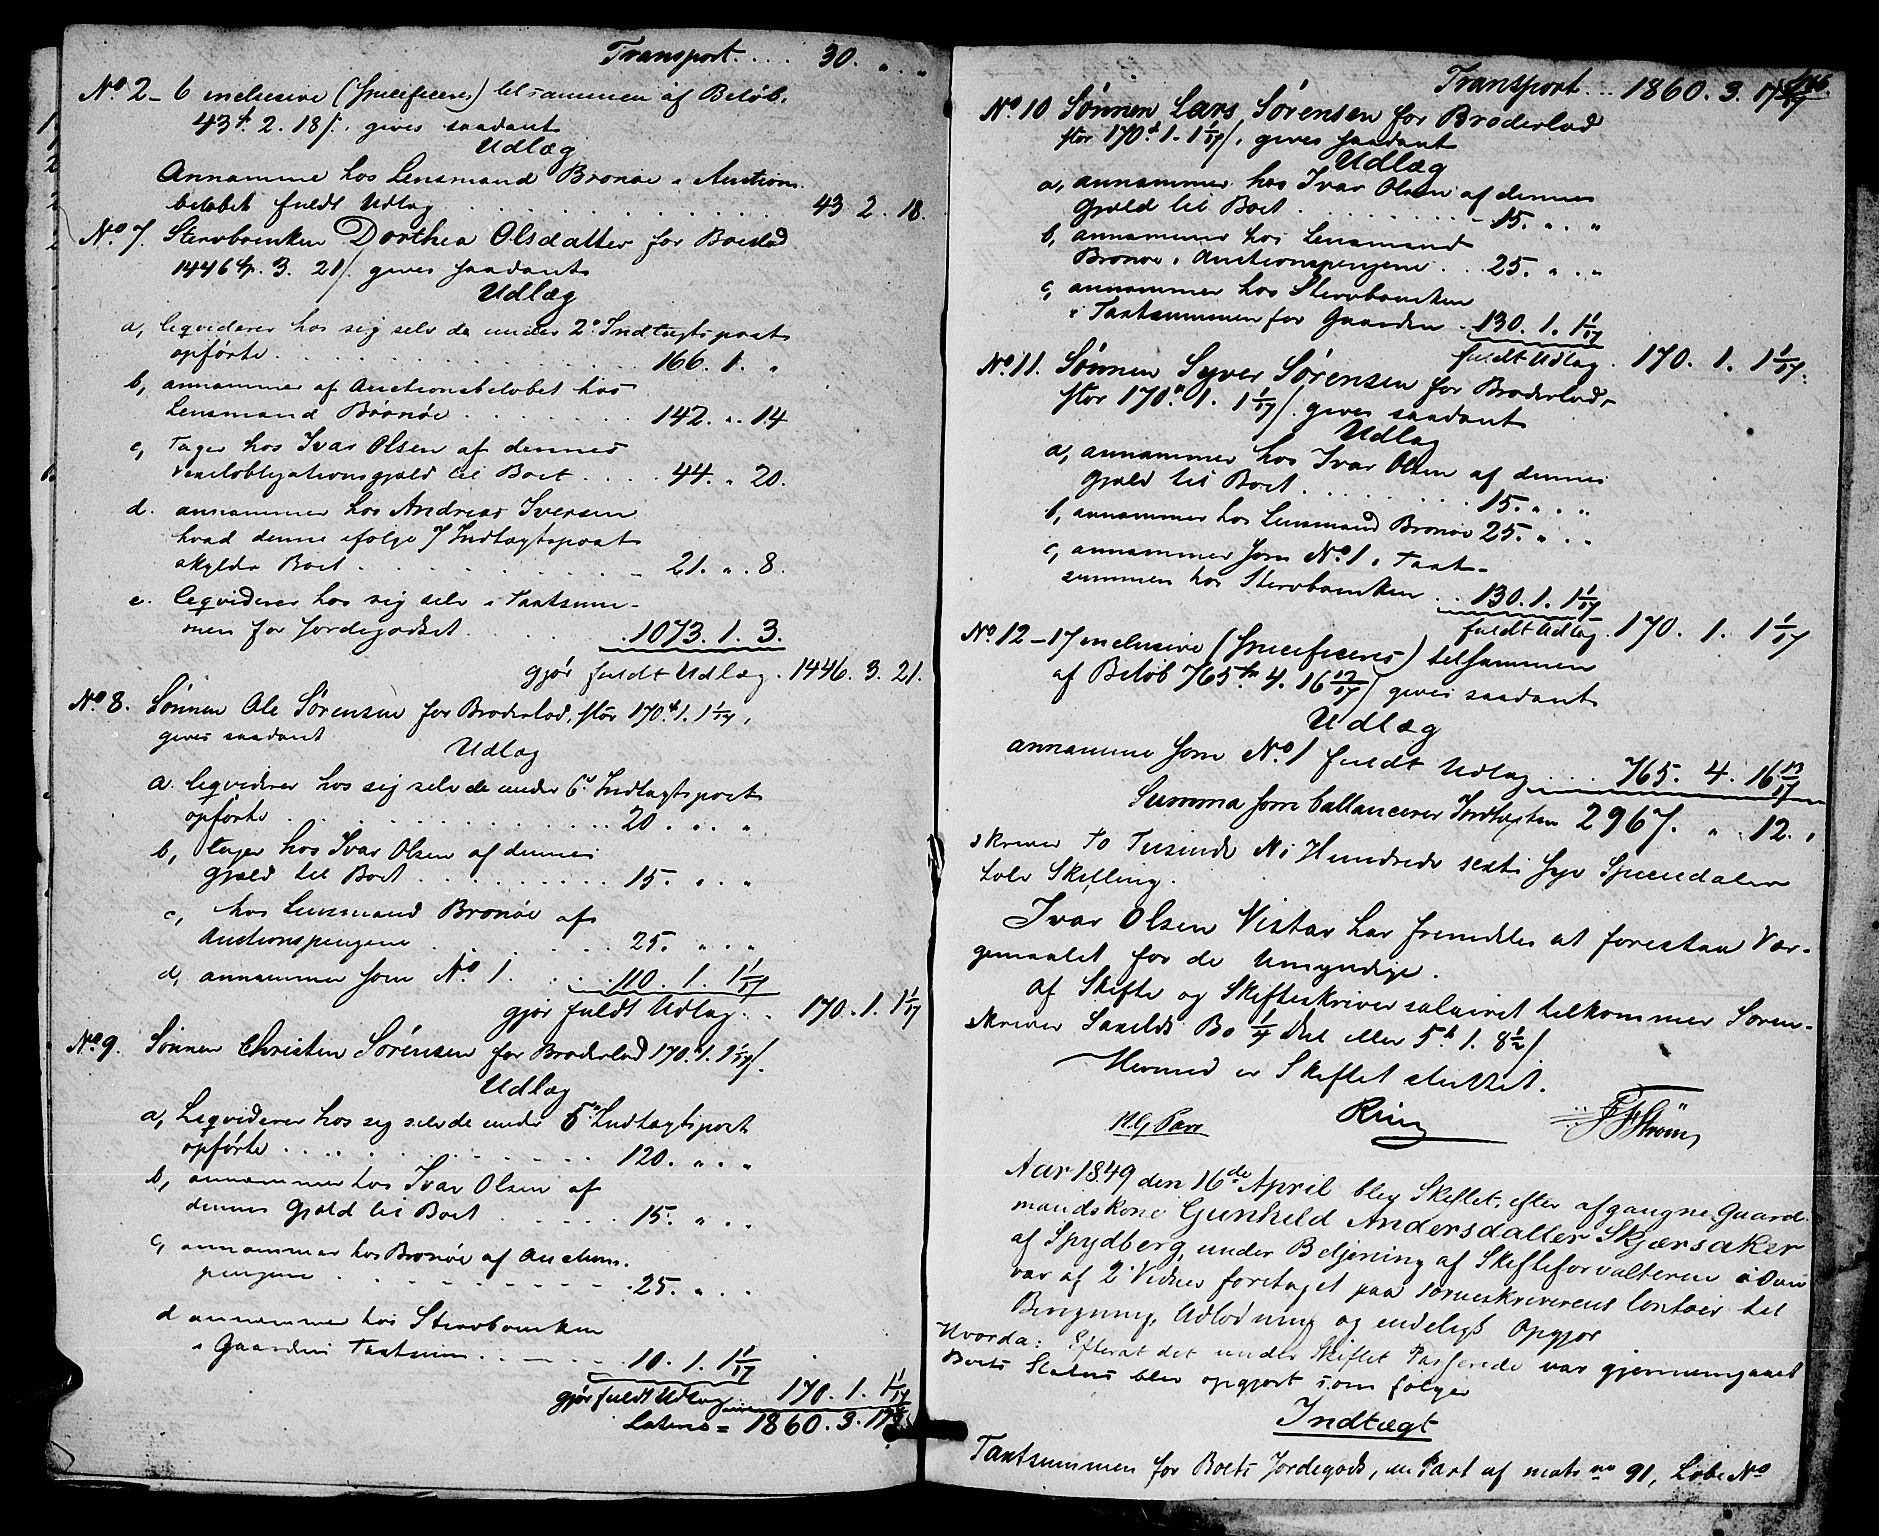 Transport. . . . 30. " . "
No 2 - 6 inclusive (Specificeres) tilsammen af Beløb.
43 2. 18/. gives saadant
Udlæg
Annamme hos Lensmand Bronøe i Auctions
beløbet fuldt Udlæg . . . . . . . . 43. 2. 18.
No 7. Stervboenken Dorthea Olsdatter for Boeslod
1446 Sp. 3. 21/. gives saadant
Udlæg
a, leqviderer hos sig selv de under 2. Indtægtspost
opførte . . . . . . 166. 1. "
b, annammer af Auctionsbeløbet hos
Lensmand Brønøe . . . . . . 142. ". 14
c, Tager hos Ivar Olsen af dennes
Vexelobligationsgjæld til Boet . . . . 44. " 20.
d. annammer hos Andreas Iversen
hvad denne ifølge 7 Indtægtspost
skylder Boet . . . . . . 21. ". 8.
e. leqviderer hos sig selv i Taxtsum-
men for Jordegodset . . . . . 1073. 1. 3.
gjør fuldt Udlæg . 1446. 3. 21.
No 8. Sønnen Ole Sørensen for Broderlod, stor 170. 1. 1 1/17,
gives saadant
Udlæg
a. leqviderer hos sig selv de under 6 Indtægtspost
opførte . . . . . . 20. ". "
b, tager hos Ivar Olsen af dennes
Gjæld til Boet . . . . . . 15. ". "
c, hos Lensmand Bronøe af
Auctionspengene . . . . . 25. ". "
d, annammer som No 1. . . . 110. 1. 1 1/17
gjør fuldt Udlæg . . 170. 1. 1 1/17
No 9. Sønnen Christen Sørensen for Broderlod 170. 1. 1 1/17/.
Udlæg
a, Leqviderer hos sig selv de under 5 Indtægtspost
opførte . . . . . . 120. ". "
b, annammer hos Ivar Olsen af
dennes Gjæld til Boet . . . . . 15. ". "
c, annammer hos Bronøe af Auctions.
pengene . . . . . . 25. ". "
d annammer hos Stervboenken
i Gaardens Taxtsum . . . . . 10. 1. 1 1/17
gjør fuldt Udlæg 170. 1. 1 1/17
Lateris = 1860. 3. 17
Transport . . . 1860. 3. 17
No 10 Sønnen Lars Sørensen for Broderlod
stor 170. 1. 1 1/17/. gives saadant
Udlæg
a, annammer hos Ivar Olsen af dennes
Gjæld til Boet . . . . . . 15. ". "
b, annammer hos Lensmand
Bronøe i Auctionspengene . . . 25. ". "
c, annammer hos Stervboenken
i Taxtsummen for Gaarden . 130. 1. 1 1/17
fuldt Udlæg . 170. 1. 1 1/17.
No 11. Sønnen Syver Sørensen for Broderlod,
stor 170. 1. 1 1/17/. gives saadant
Udlæg
a, annammer hos Ivar Olsen af dennes
Gjæld til Boet . . . . . . 15. ". "
b, annammer hos Lensmand Bronøe 25. ". "
c, annammer som No 1 i Taxt-
summen hos Stervboenken . . 130. 1. 1 1/17
fuldt Udlæg . 170. 1. 1 1/17
No 12 - 17 inclusive (Specificeres) tilsammen
af Beløb 765. 4. 16 13/17/ gives saadant
Udlæg
annamme som No 1 fuldt Udlæg . . . 765. 4. 16 13/17
Summa som ballancerer Indtægten 2967. ". 12.
skriver To Tusinde Ni Hundrede sexti syv Speciedaler
tolv Skilling.
Ivar Olsen Vistar har fremdeles at forestaa Vær-
gemaalet for de Umyndige.
Af Skifte og Skifteskriversalairet tilkommer Soren-
skriver Saxilds Bo 1/4 Del eller 5 1. 8 1/2/
Hermed er Skiftet sluttet.
Ring
Aar 1849 den 16de April blev Skiftet efter afgangne Gaard
mandskone Gunhild Andersdatter Skjærsaker
af Spydberg under Betjening af Skifteforvalteren i Over
vær af 2 Vidner foretaget paa Sorenskriverens Contoir til
Beregning, Udlodning og endeligt Opgjør
Hvorda: Efterat det under Skiftet Passerede var gjennemgaaet
Boets Status blev opgjort som følger
Indtægt
Taxtsummen for Boets Jordegods, en Part af mats no 91, Løbe No